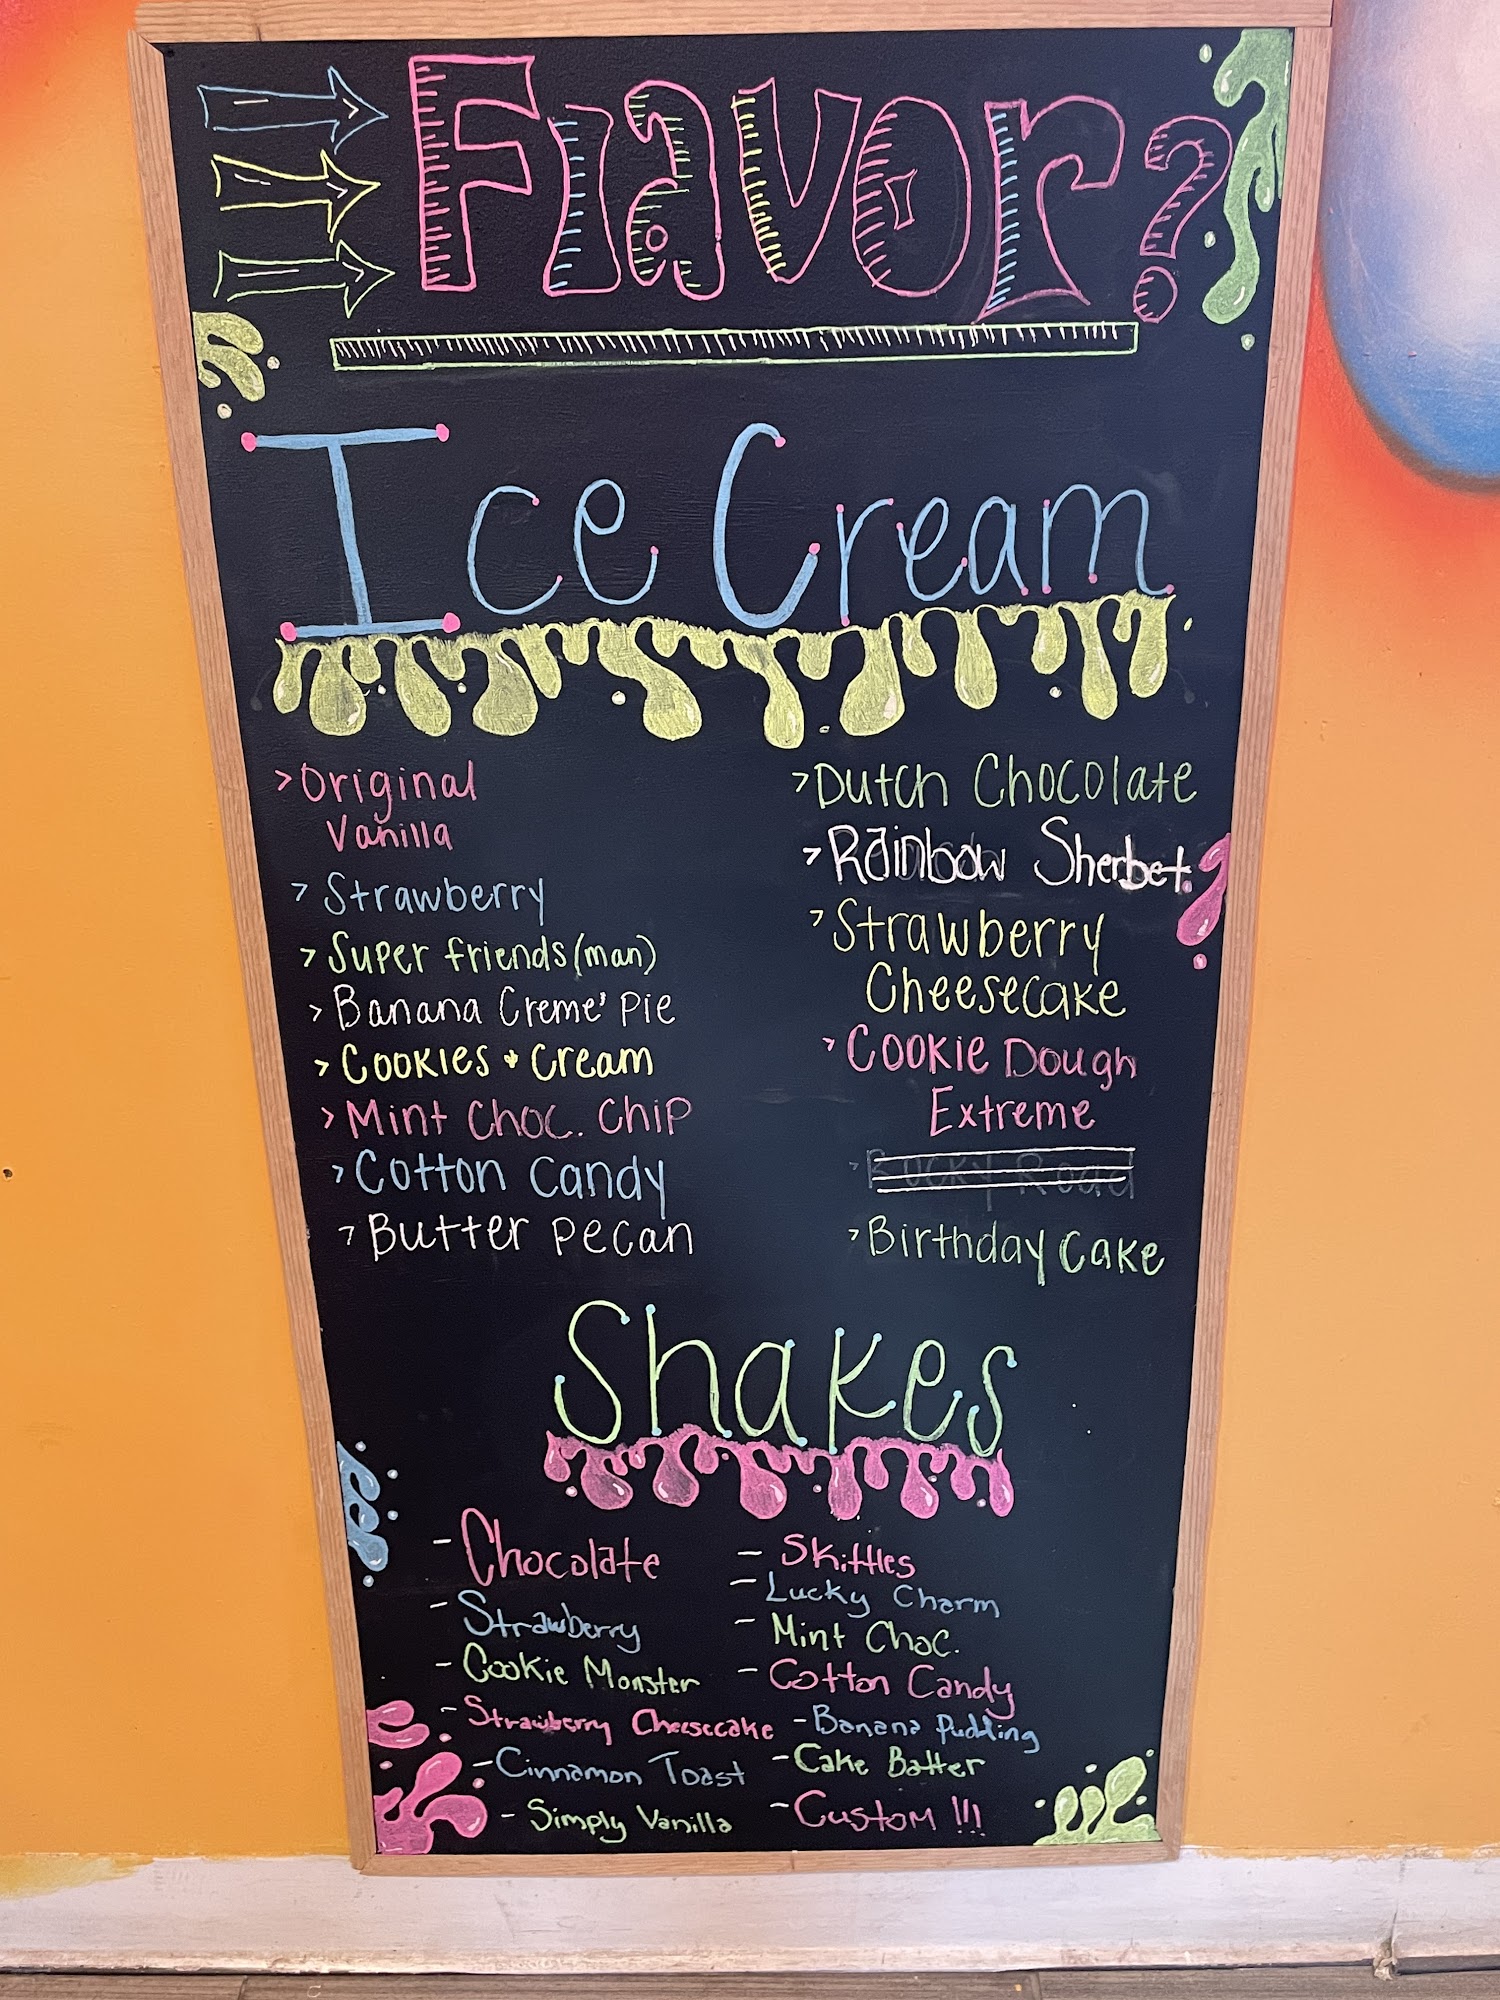 Flavor?
Ice Cream
> Original
Vanilla
> Strawberry
> Super friends (man)
> Banana Creme' Pie
> Cookies + Cream
> Mint Choc. Chip
> Cotton Candy
> Butter Pecan
> Dutch Chocolate
> Rainbow Sherbet
> Strawberry
Cheesecake
> Cookie Dough
Extreme
> Rocky Road
> Birthday Cake
Shakes
- Chocolate
- Strawberry
- Cookie Monster
- Strawberry Cheesecake
- Cinnamon Toast
- Simply Vanilla
- Skittles
- Lucky Charm
- Mint Choc.
- Cotton Candy
- Banana Pudding
- Cake Batter
- Custom !!!